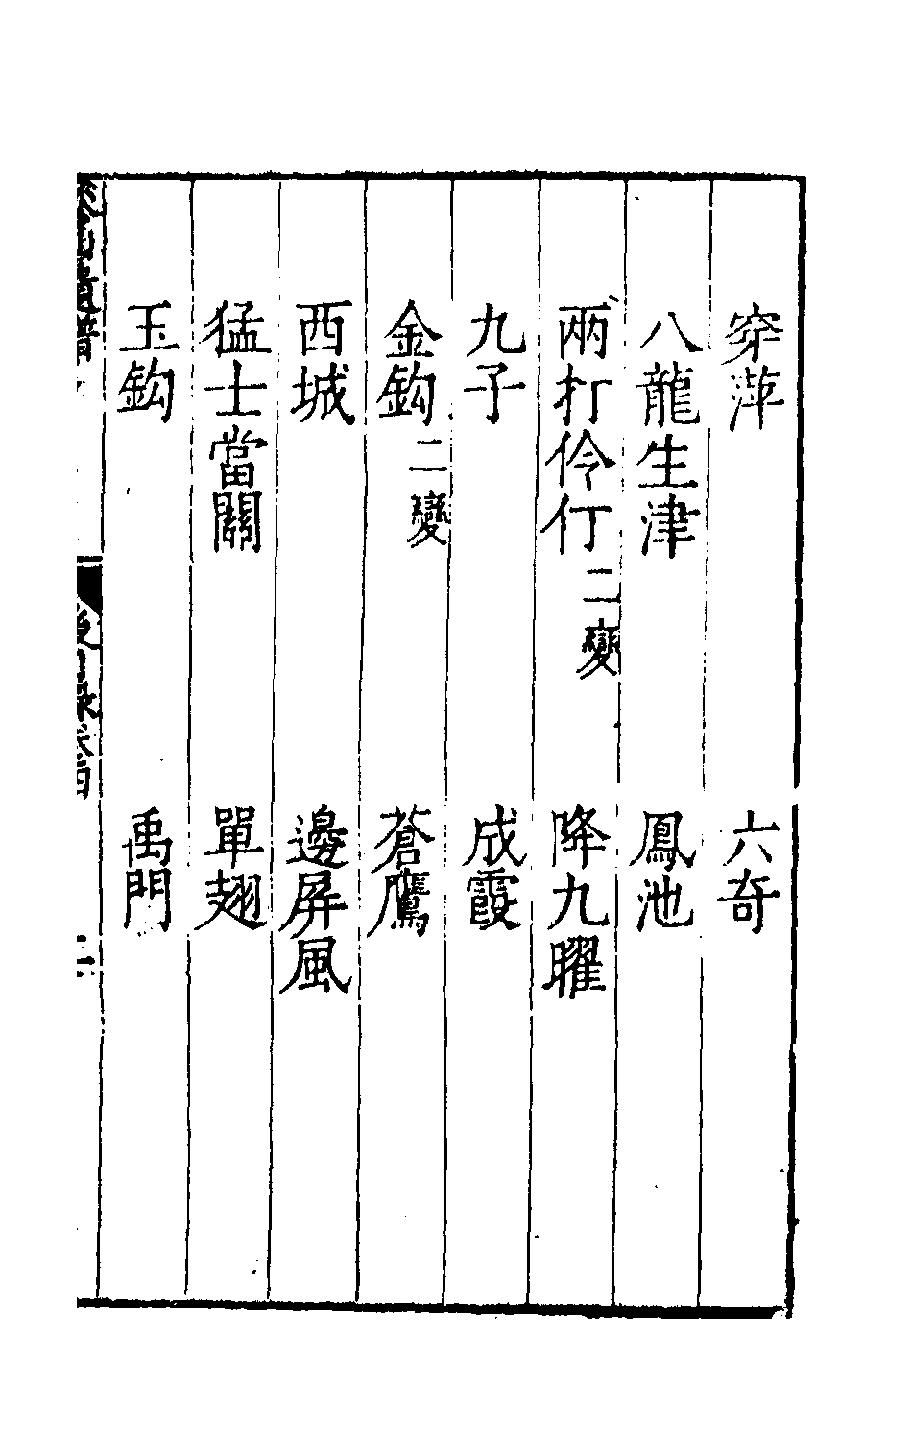 穿萍　六奇
八龍生津　鳳池
兩打伶仃二變　降九曜
九子　成霞
金鈎二變　蒼鷹
西城　邊屏風
猛士當關　單翅
玉鈎　禹門